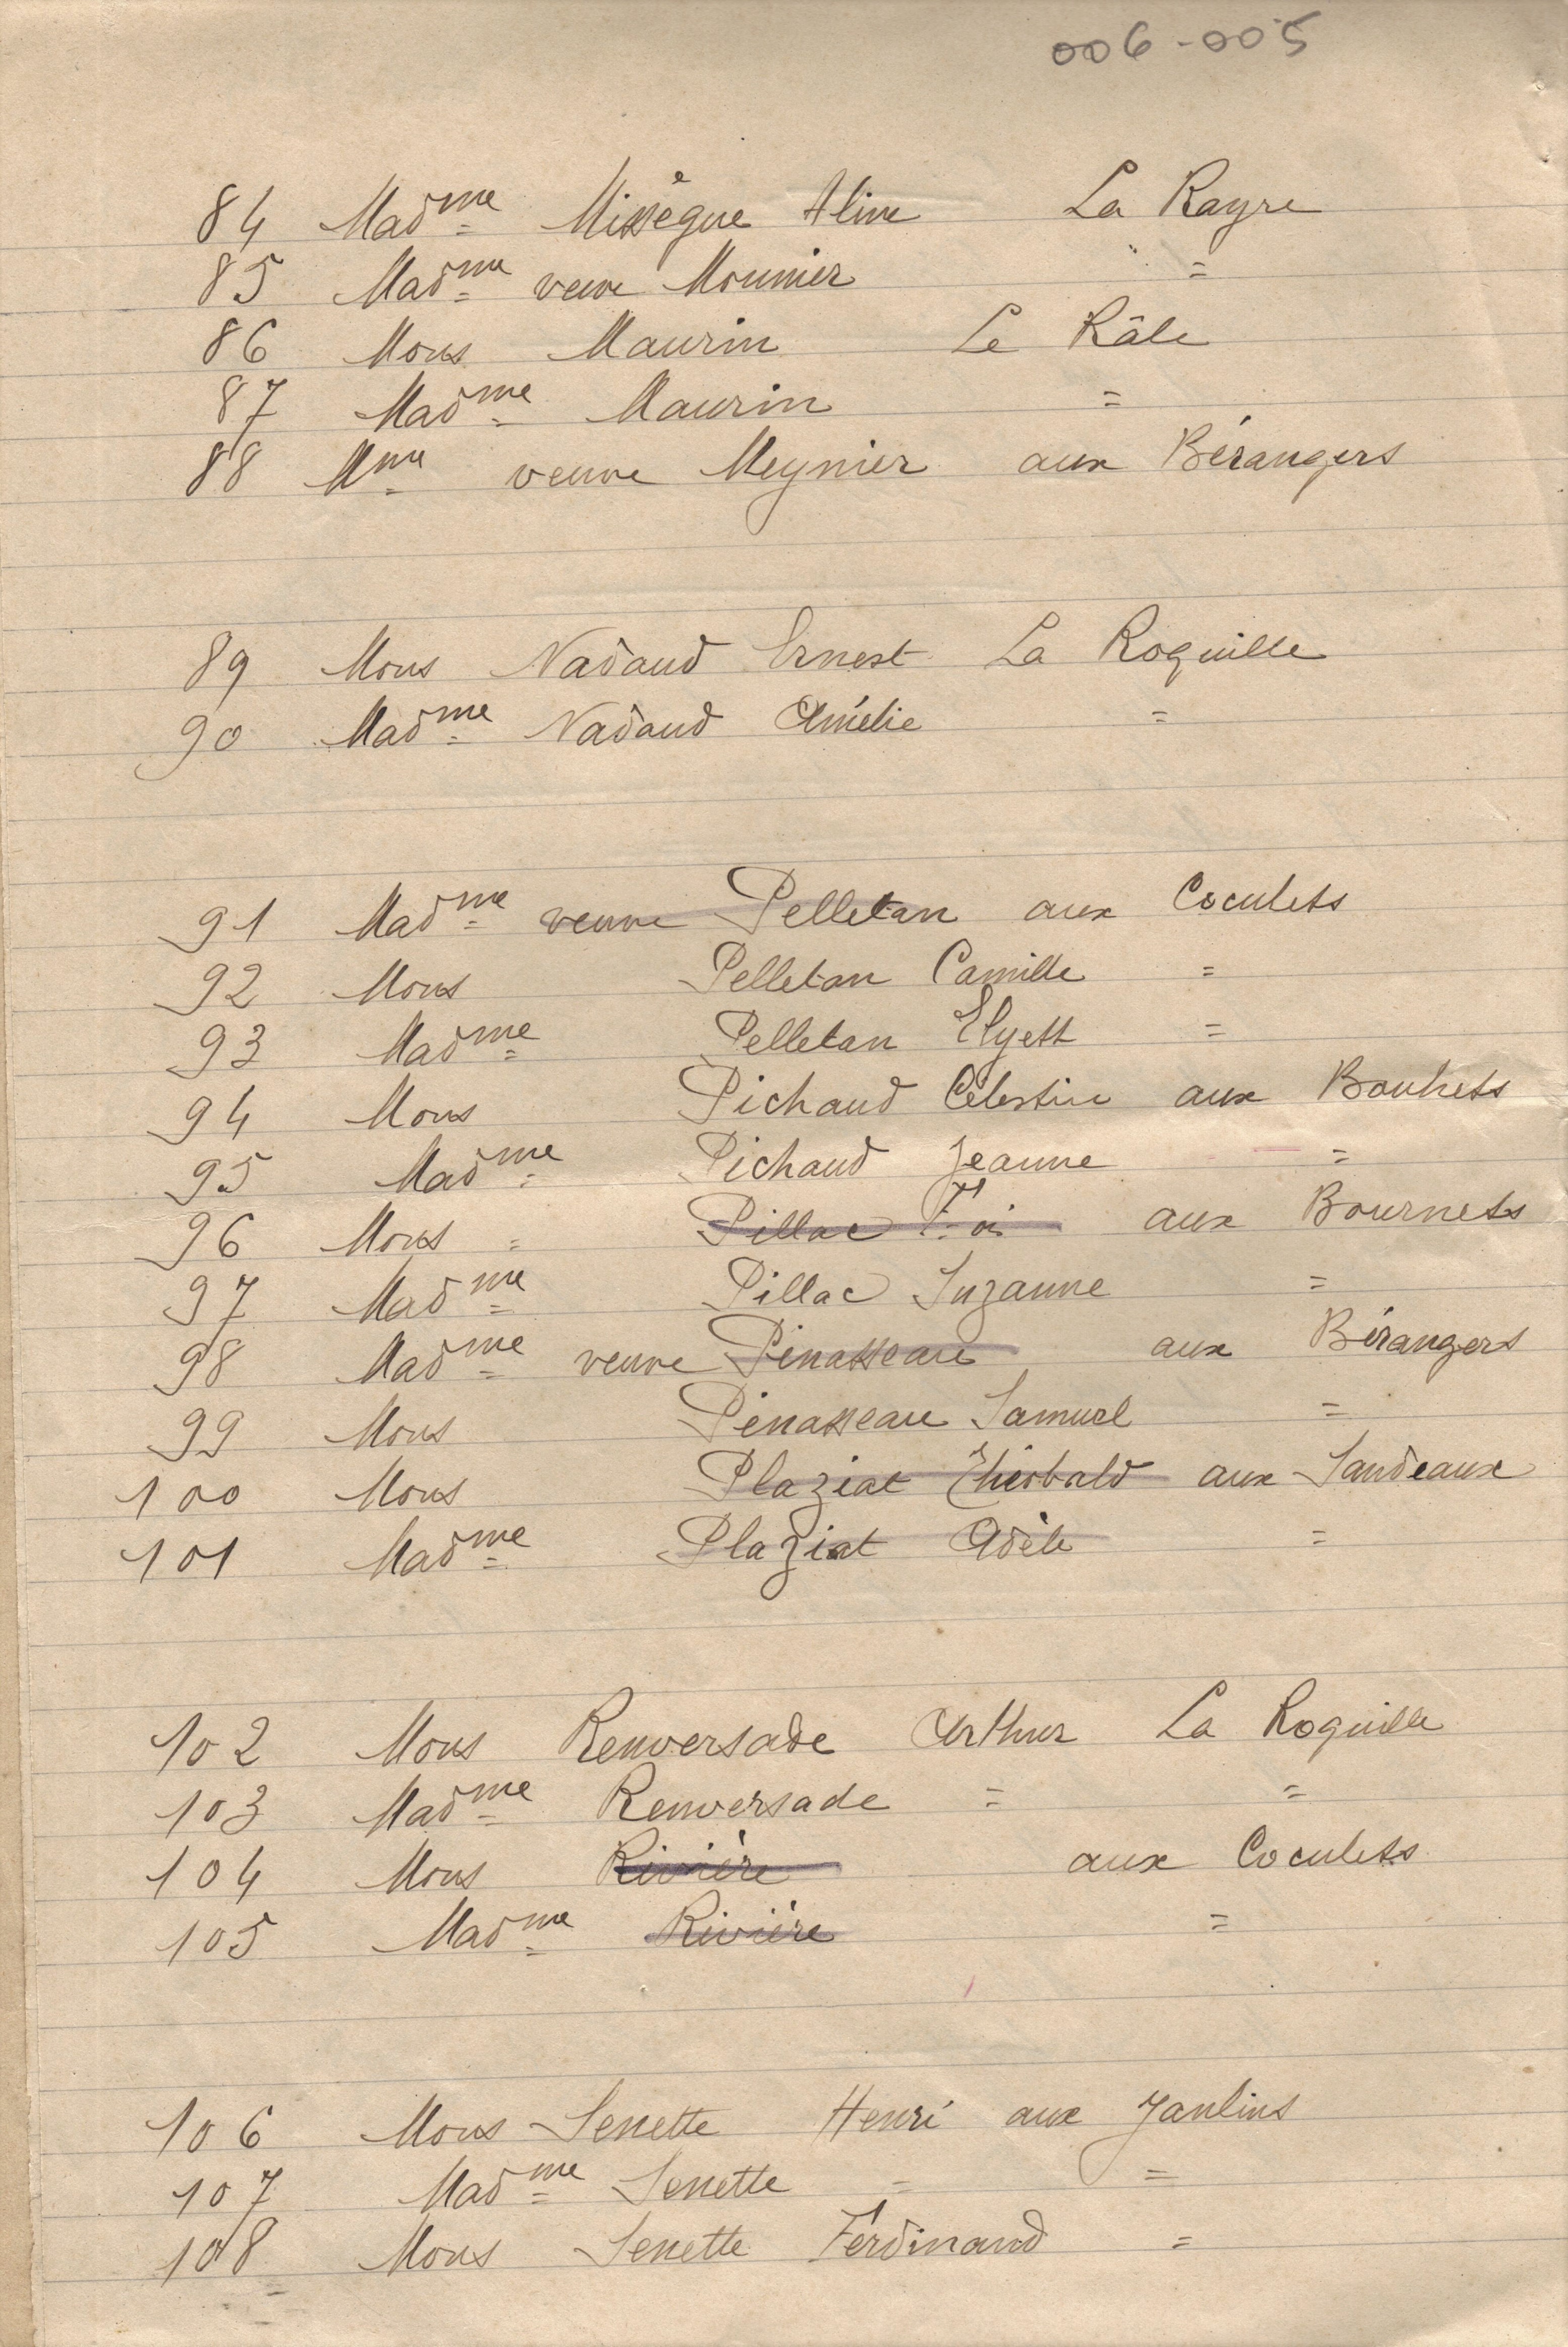 006-005
84 Madme Missègue Aline La Rayre
85 Madme veuve Mounier " =
86 Mons Maurin Le Râle
87 Madme Maurin =
88 Mme veuve Meynier aux Bérangers
89 Mons Nadaud Ernest La Roquille
90 Madme Nadaud Amélie =
91 Madme veuve Pelletan aux Coculets
92 Mons Pelletan Camille =
93 Madme Pelletan Elyett =
94 Mons Pichaud Célestin aux Bouhets
95 Madme Pichaud Jeanne =
96 Mons = Pillac F=ois aux Bournets
97 Madme Pillac Suzanne =
98 Madme veuve Pénasseau aux Bérangers
99 Mons Pénasseau Samuel =
100 Mons Plaziat Théobald aux Sandeaux
101 Madme Plaziat Adèle =
102 Mons Renversade Arthur La Roquille
103 Madme Renversade = =
104 Mons Rivière aux Coculets
105 Madme Rivière =
106 Mons Senette Henri aux Jaulins
107 Madme Senette = =
108 Mons Senette Ferdinand =